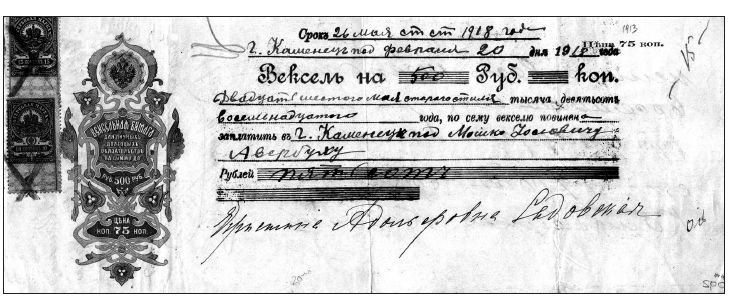 1913
Срокъ 26 мая ст ст 1918 годъ
Г. Каменецъ под февраля 20 дня 1918 года
Цѣна 75 коп.
Вексель на 500 Руб. коп.
Двадцать шестого мая стараго стиля тысяча девятьсотъ
восемнадцатого года, по сему векселю повинена
заплатить въ г. Каменецъ под Мошко
Авербуху
Рублей пятьсотъ
Адольфовна Садовская
ВЕКСЕЛЬНАЯ БУМАГА
ДЛЯ
ДОЛГОВЫХЪ
ОБЯЗАТЕЛЬСТВЪ
НА СУММУ ДО
РУБ. 500 РУБ.
ЦѢНА
КОП. 75 КОП.